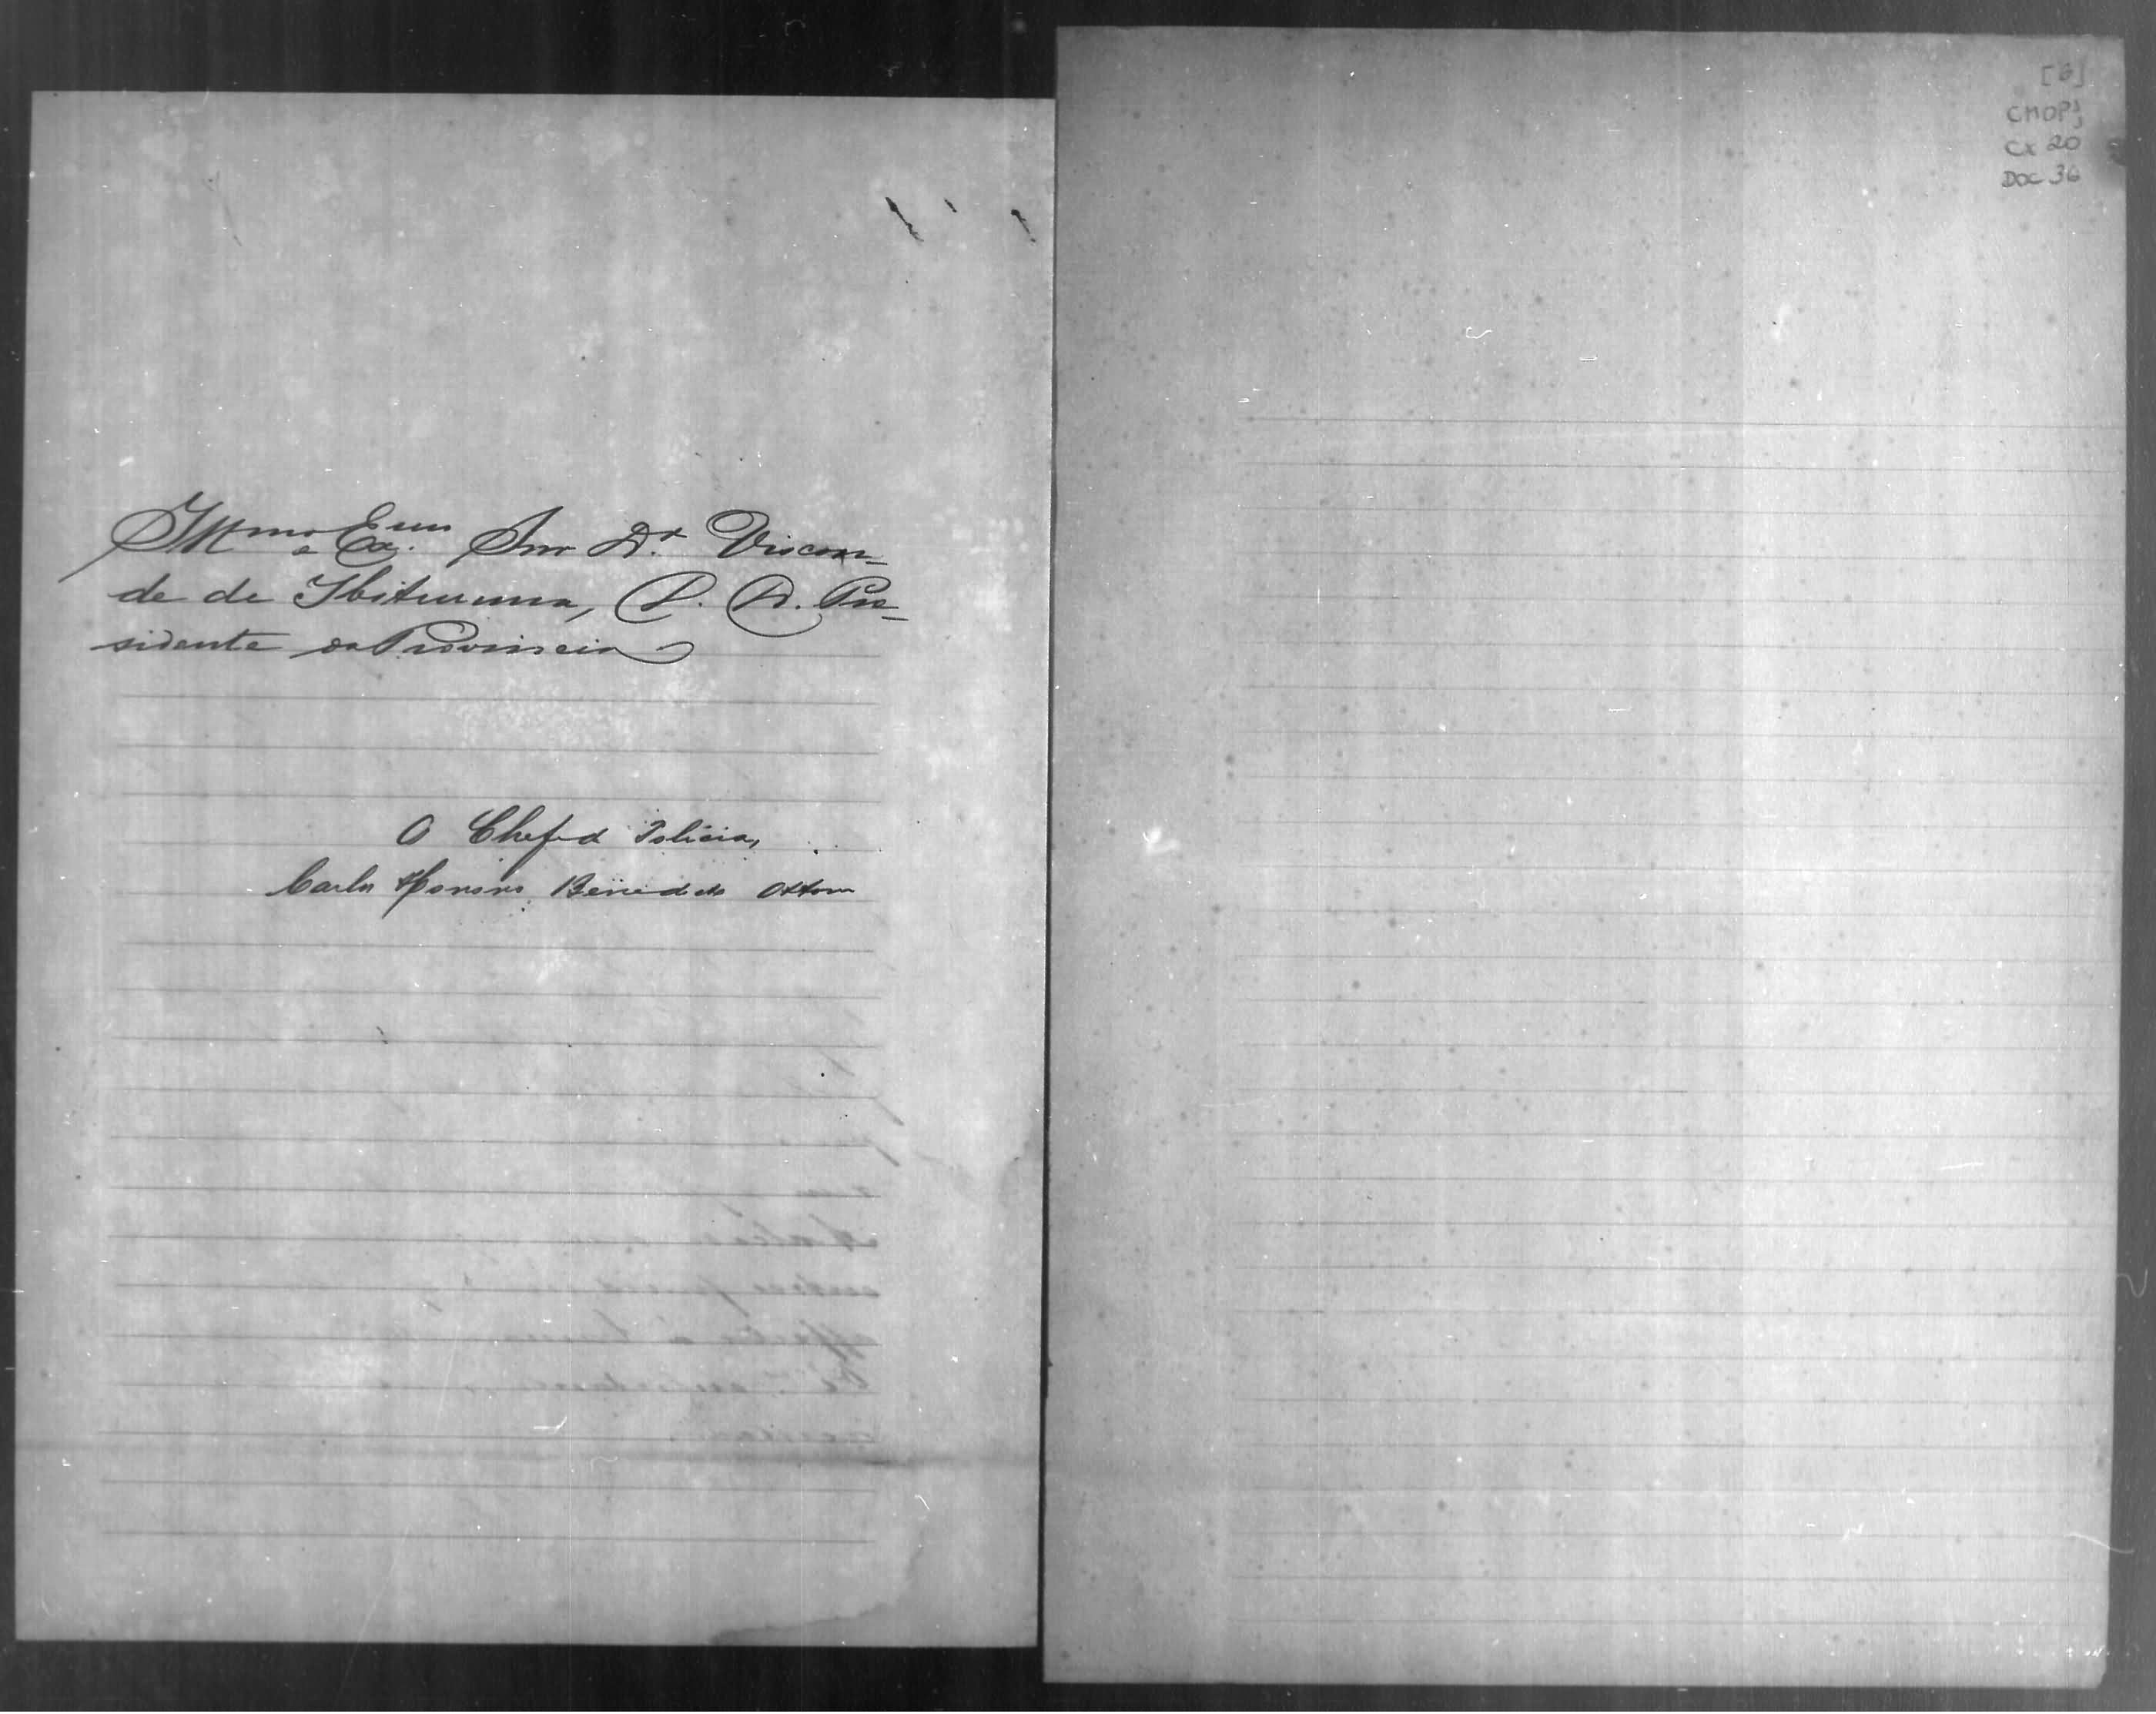 Illmo e Exmo Snr Dr. Viscon-
de de Ibituruna, D. D. Pre-
sidente da Provincia
O Chefe de Policia,
Carlos Honorio Benedicto Ottoni
[6]
CMOP
Cx 20
DOC 36